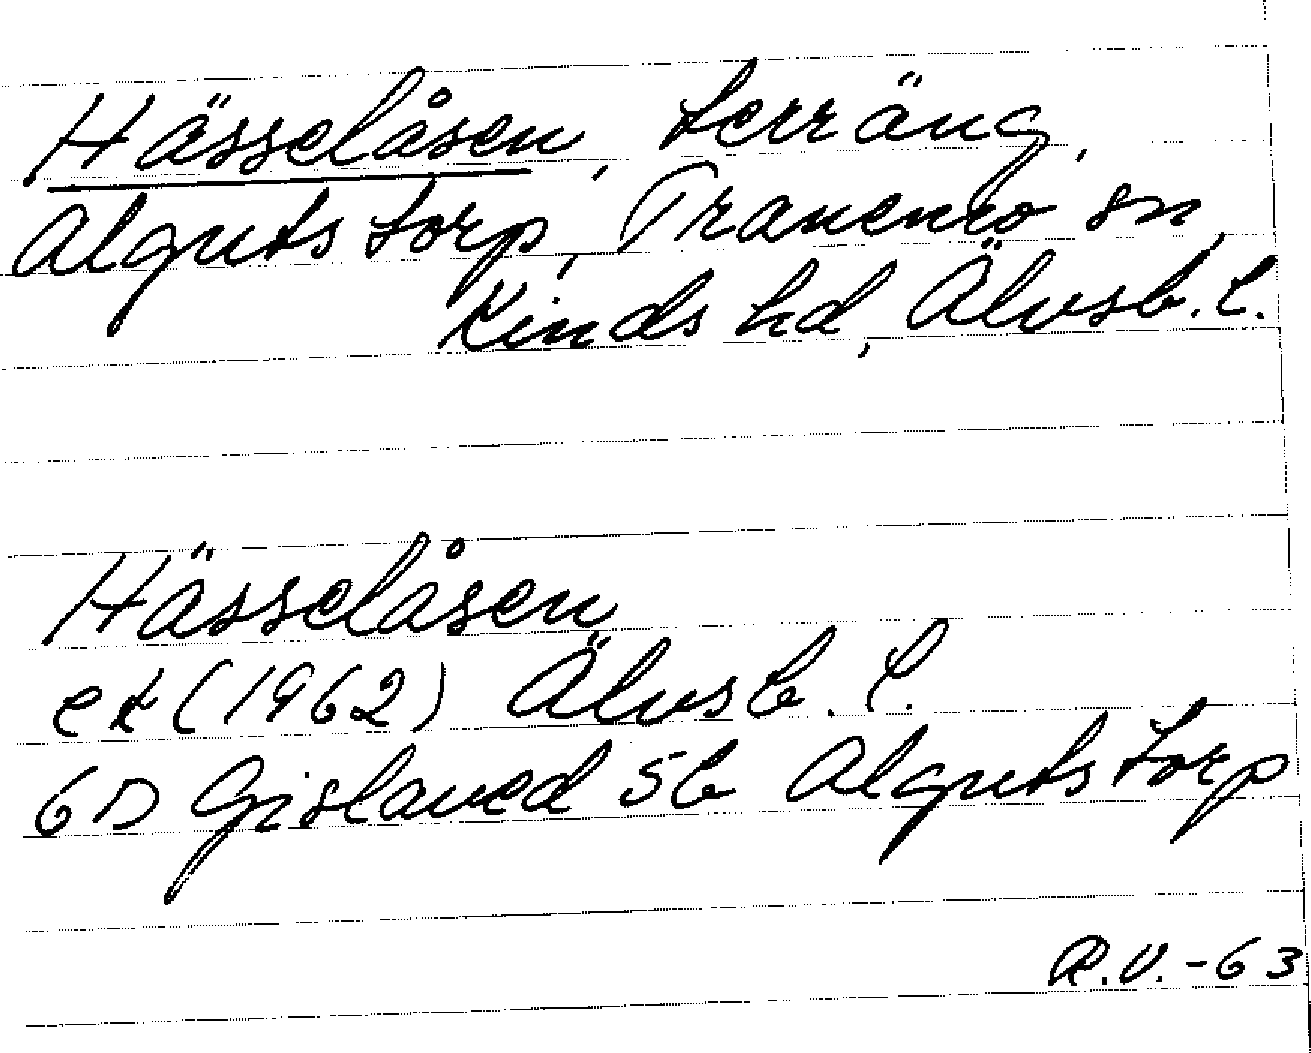 Hässelåsen, terräng,
Algutstorp, Tranemo sn,
Kinds hd, Älvsb. l.
Hässelåsen
ek (1962) Älvsb. l.
6D Gislaved 5b Algutstorp
R.V.-63